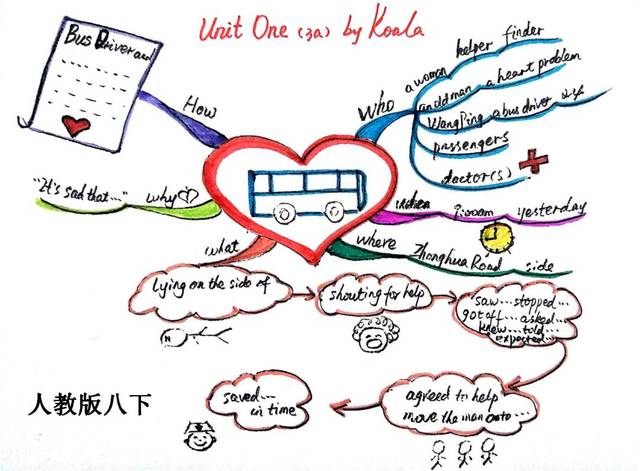 Unit One (3a) by Koala
Bus Driver and
How
Who
a woman helper finder
an old man a heart problem
Wang Ping a bus driver 24
passengers
doctor(s)
"It's sad that..." why
when 9:00am yesterday
what
where Zhonghua Road side
lying on the side of
shouting for help
saw...stopped...
got off...asked...
knew...told...
expected...
agreed to help
move the man onto...
saved...
in time
人教版八下